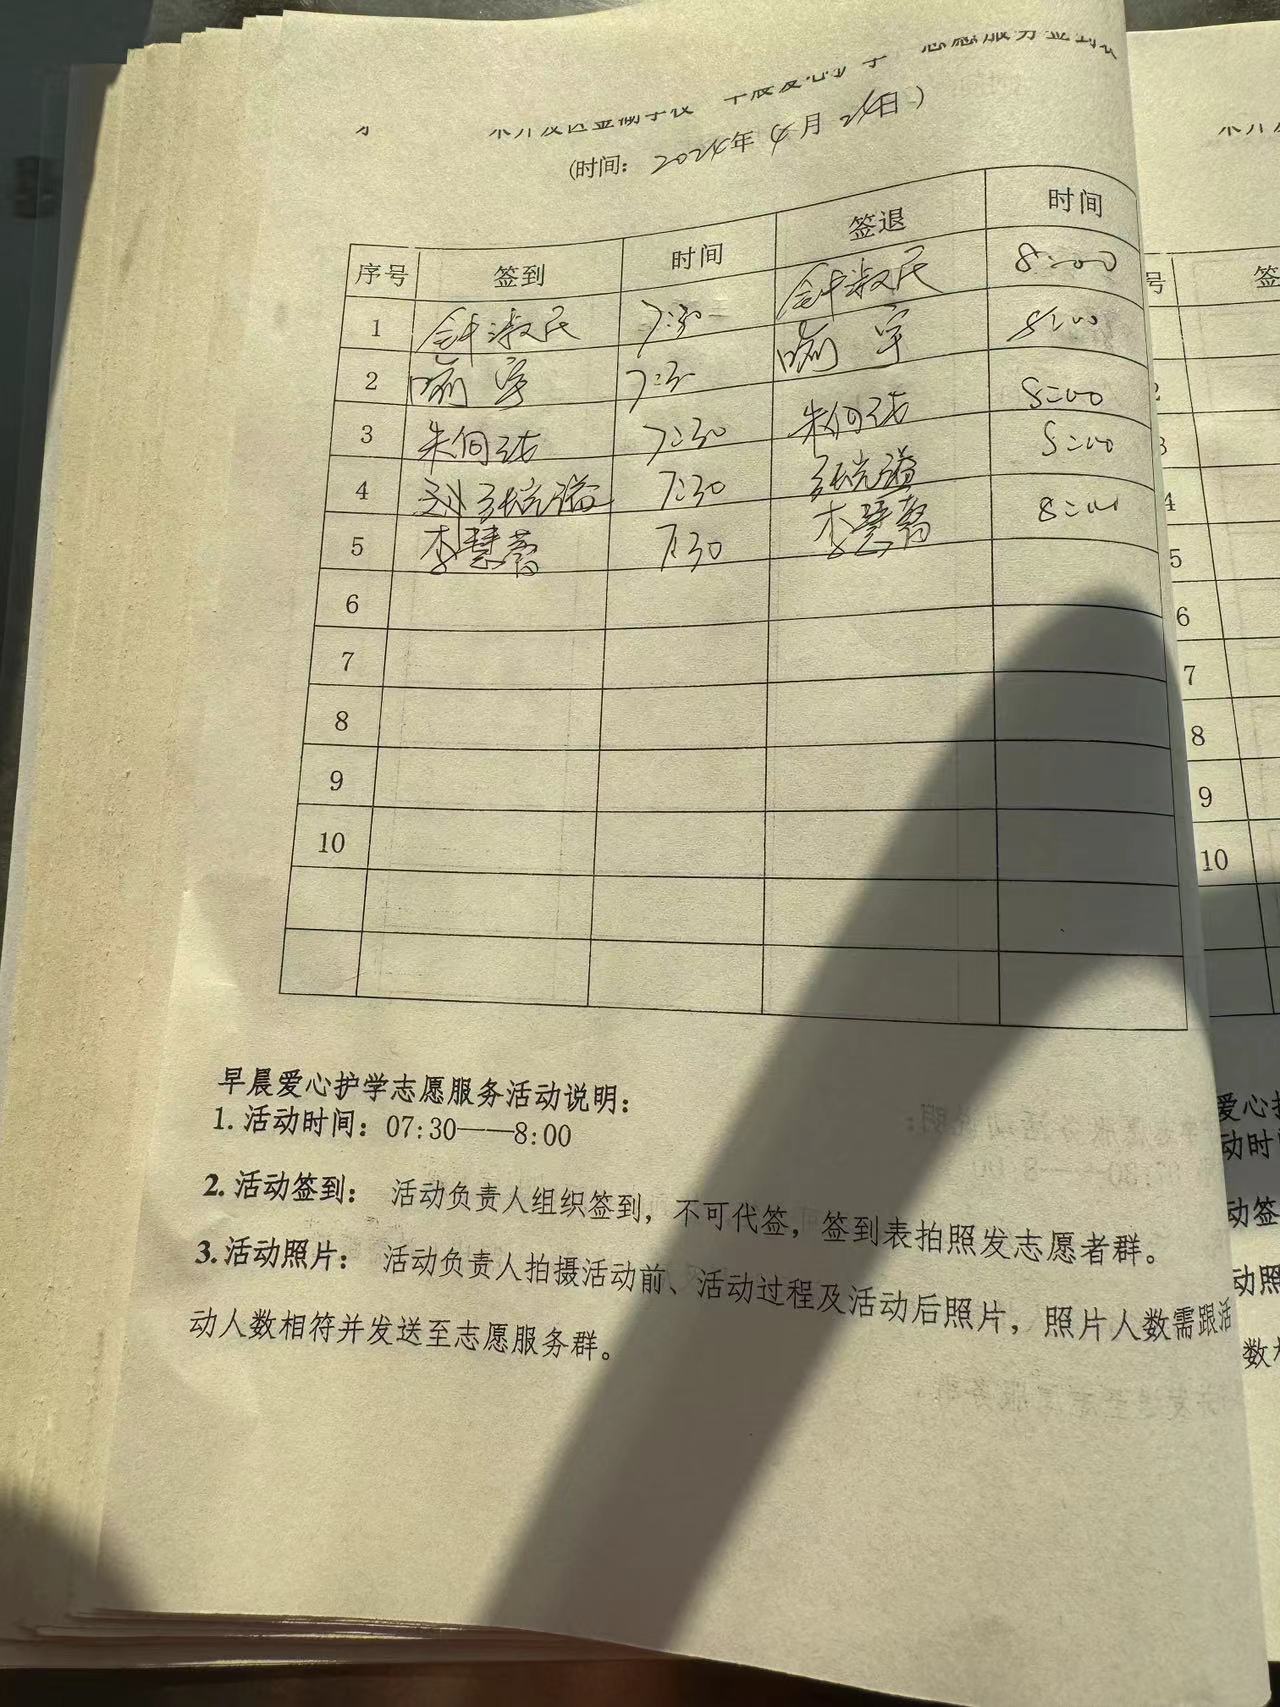 (时间: 2024年4月24日)
序号 签到 时间 签退 时间
1 钟淑民 7:30 钟淑民 8:00
2 喻宇 7:30 喻宇 8:00
3 朱何 7:30 朱何 8:00
4 7:30 8:00
5 李慧 7:30 李慧 8:00
6
7
8
9
10
早晨爱心护学志愿服务活动说明:
1.活动时间: 07:30——8:00
2.活动签到: 活动负责人组织签到,不可代签,签到表拍照发志愿者群。
3.活动照片: 活动负责人拍摄活动前、活动过程及活动后照片,照片人数需跟活
动人数相符并发送至志愿服务群。
号 签
5
6
7
8
9
10
爱心
动时
动签
动照
数